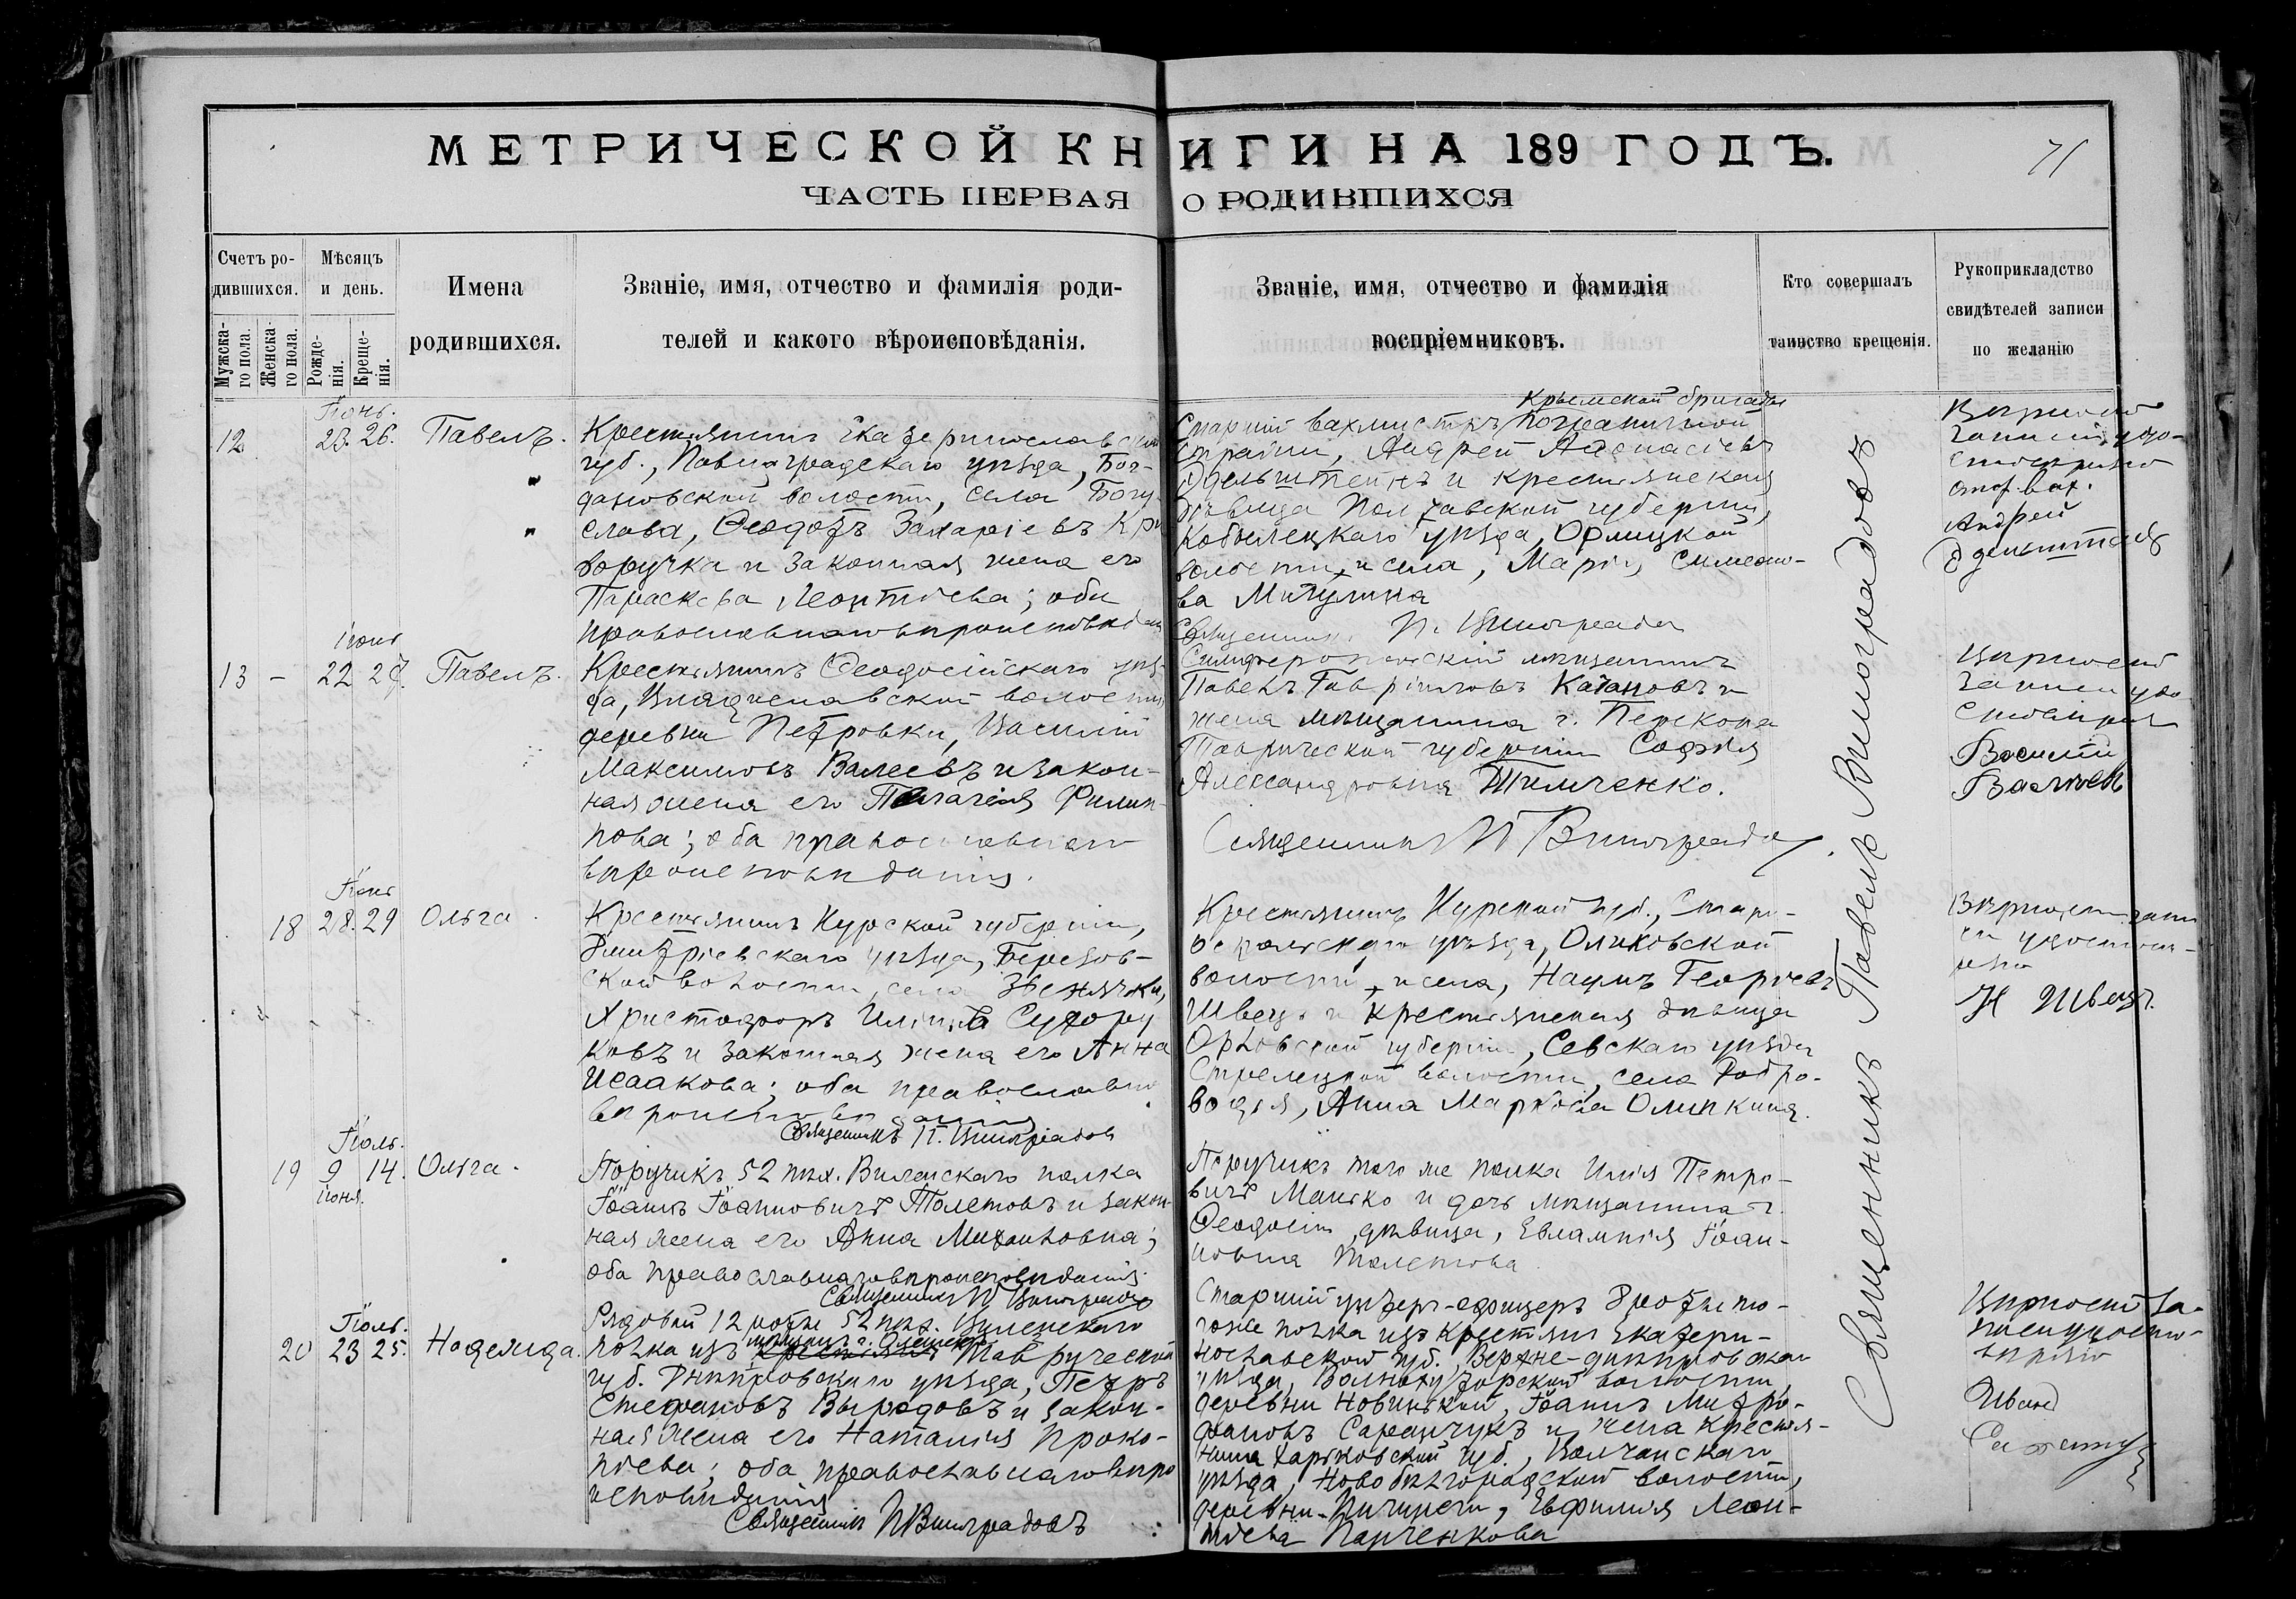 МЕТРИЧЕСКОЙ КНИГИ НА 189 ГОДЪ.
71
ЧАСТЬ ПЕРВАЯ О РОДИВШИХСЯ
Счетъ ро-
дившихся.
Мужска-
го пола.
Женска-
го пола.
Мѣсяцъ
и день.
Рожде-
нія.
Креще-
нія.
Имена
родившихся.
Званіе, имя, отчество и фамилія роди-
телей и какого вѣроисповѣданія.
Званіе, имя, отчество и фамилія
воспріемниковъ.
Кто совершалъ
таинство крещенія.
Рукоприкладство
свидѣтелей записи
по желанію
12
Іюнь.
26.
Павелъ.
Крестьянинъ Екатеринославской
губ., Павлоградскаго уѣзда, Бог-
дановской волости, села Богу-
слава, Ѳеодотъ Захаріевъ Кри
воручка и законная жена его
Параскева Леонтіева; оба
православнаго вѣроисповѣданія
Крымской бригады
Старшій вахмистръ пограничной
стражи, Андрей Аѳонасіевъ
Эдельштейнъ и крестьянская
дѣвица Полтавской губерніи,
Кобелецкаго уѣзда, Орлицкой
волости и села, Марія Симеоно-
ва Мигулина
Священникъ П. Виноградовъ
Андрей
Эдельштейнъ
13 -
Іюнь
22 27.
Павелъ.
Крестьянинъ Ѳеодосійскаго уѣз-
да, Владиславской волости,
деревни Петровки, Василій
Максимовъ Валеевъ и закон-
ная жена его Пелагія Филип-
пова; оба православнаго
вѣроисповѣданія.
Симферопольскій мѣщанинъ
Павелъ Гавріиловъ Качановъ и
жена мѣщанина г. Перекопа
Таврической губерніи Софія
Александровна Тимченко.
Священникъ П Виноградовъ.
Вѣрность
записи удо
Василій
Валеевъ
18
Іюнь
28. 29
Ольга
Крестьянинъ Курской губерніи,
Дмитріевскаго уѣзда, Березов-
ской волости, села Звенячки,
Христофоръ Иліинъ Судору
ковъ и законная жена его Анна
Исаакова; оба православнаго
вѣроисповѣданія
Священникъ П. Виноградовъ
Крестьянинъ Курской губ., Старо-
оскольскаго уѣзда, Олиховской
волости и села, Наумъ Георгіевъ
Швецъ и крестьянская дѣвица
Орловской губерніи, Севскаго уѣзда
Стрелецкой волости, села Добро-
водья, Анна Маркова Олипкина.
Н Швецъ.
19
Іюль.
9 14.
Іюня.
Ольга.
Поручикъ 52 пѣх. Виленскаго полка
Іоаннъ Іоанновичъ Толетовъ и закон-
ная жена его Анна Михаиловна;
оба православнаго вѣроисповѣданія.
Священникъ П Виноградовъ
Поручикъ того же полка Илія Петро-
вичъ Манько и дочь мѣщанина г.
Ѳеодосіи, дѣвица, Евлампія Іоан-
новна Толетова
20
Іюль.
23 25.
Надежда.
Рядовой 12 роты 52 пѣх. Виленскаго
полка изъ мѣщанъ г. Олешекъ Таврической
губ. Днѣпровскаго уѣзда, Петръ
Стефановъ Выродовъ и закон-
ная жена его Наталія Проко-
піева; оба православнаго вѣро
исповѣданія
Священникъ П Виноградовъ
Старшій унтеръ-офицеръ 8 роты то-
гоже полка изъ крестьянъ Екатери-
нославской губ., Верхне-днѣпровскаго
уѣзда, волости
деревни Іоаннъ Митро-
фановъ Саранчукъ и жена крестья-
нина Харьковской губ., Волчанскаго
уѣзда, Новобѣлгородской волости,
деревни Печинеги, Евфимія Леон-
тіева Панченкова
Иванъ
Священникъ Павелъ Виноградовъ